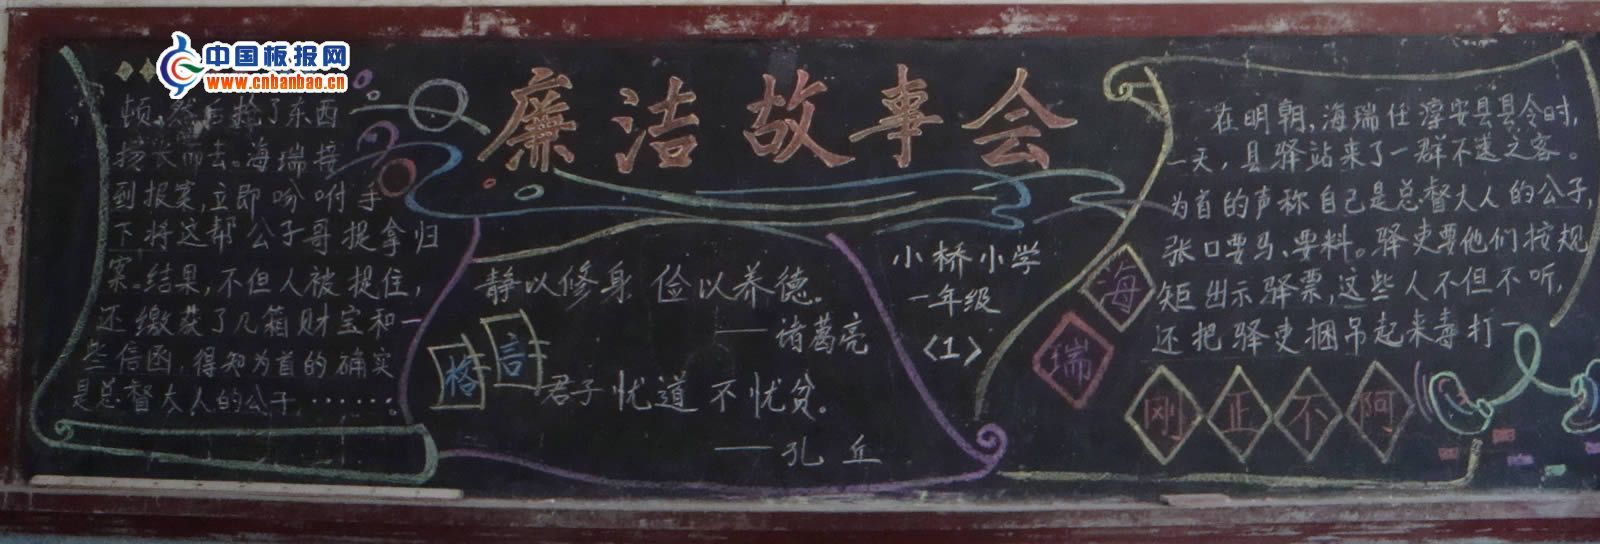 中国板报网
www.cnbanbao.cn
廉洁故事会
在明朝,海瑞任淳安县县令时,
一天,县驿站来了一群不速之客。
为首的声称自己是总督大人的公子,
张口要马、要料。驿吏要他们按规
矩出示驿票,这些人不但不听,
还把驿吏捆吊起来毒打一
海瑞
刚正不阿
顿,然后抢了东西
扬长而去。海瑞接
到报案,立即吩咐手
下将这帮公子哥捉拿归
案。结果,不但人被捉住,
还缴获了几箱财宝和一
些信函,得知为首的确实
是总督大人的公子……
格言
静以修身 俭以养德。
——诸葛亮
君子忧道不忧贫。
——孔丘
小桥小学
一年级
〈1〉